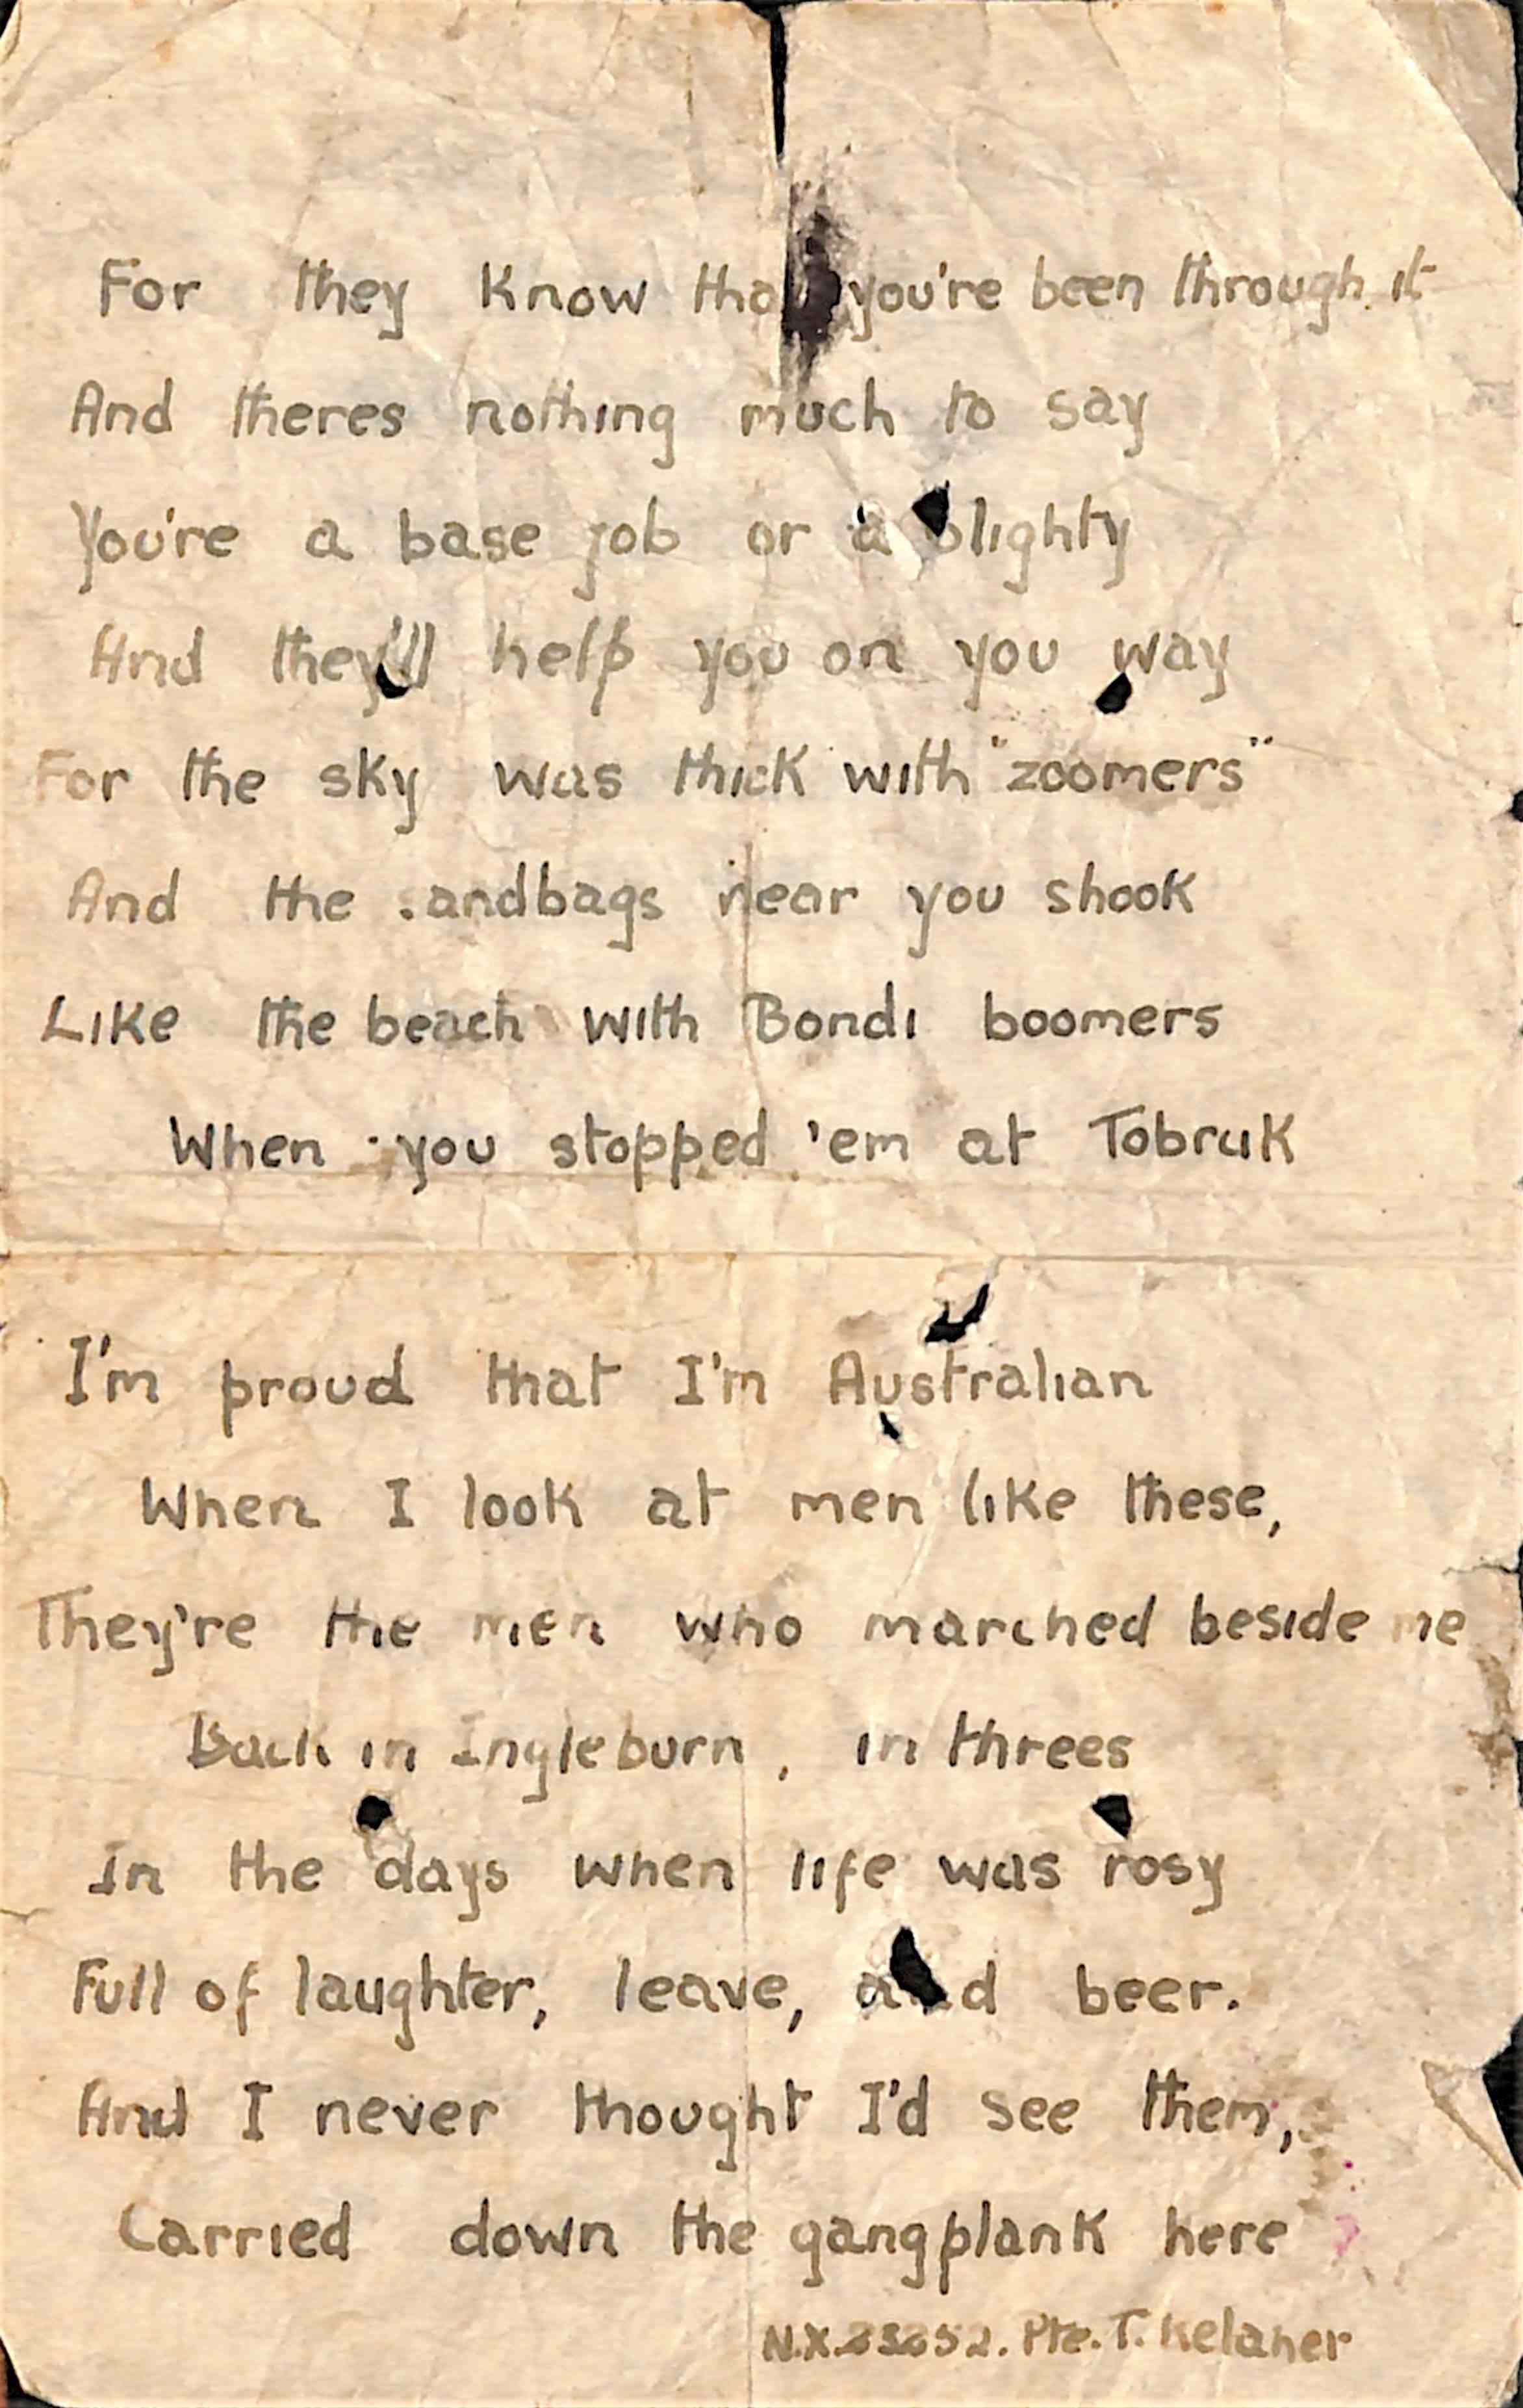 For they Know that you're been through it
And theres nothing much to say
You're a base job or a blighty
And they'll help you on you way
For the sky was thick with "zoomers"
And the sandbags near you shook
Like the beach with Bondi boomers
When you stopped 'em at Tobruk
I'm proud that I'm Australian
When I look at men like these,
They're the men who marched beside me
Back in Ingleburn, in threes
In the days when life was rosy
Full of laughter, leave, and beer.
And I never thought I'd see them,
Carried down the gangplank here
Pte. T. Kelaher